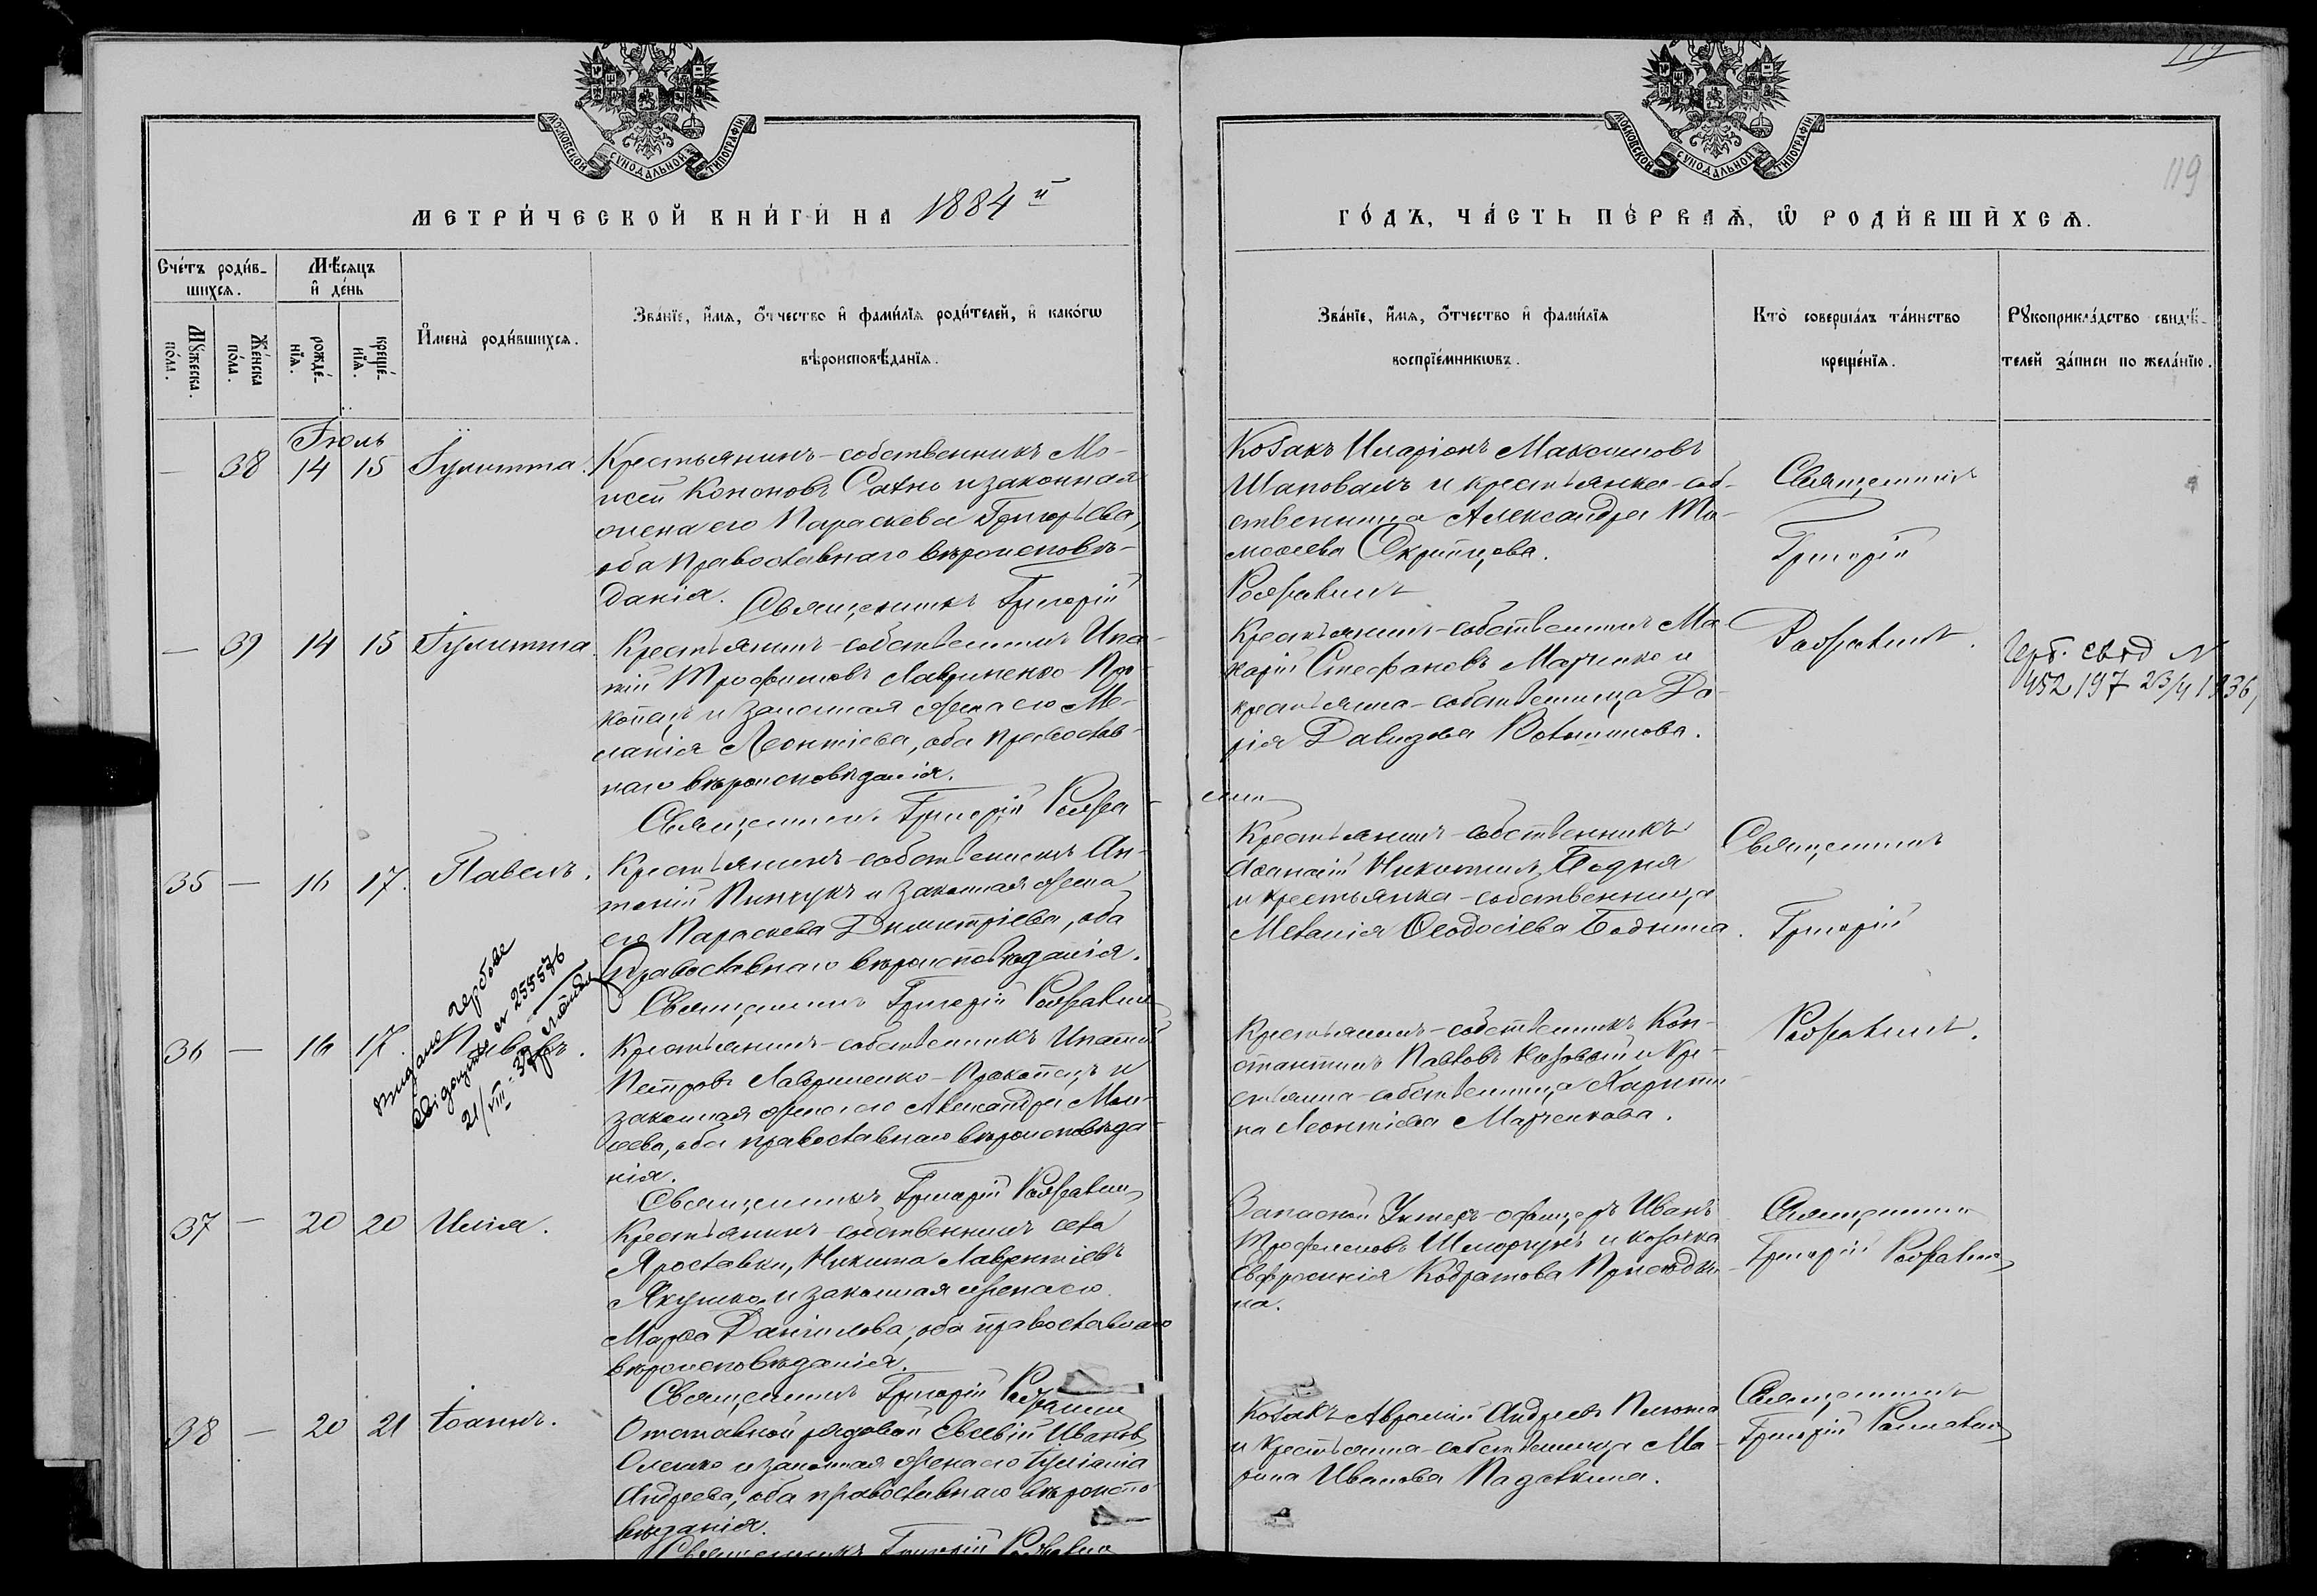 119
МОСКОВСКОЙ СУНОДАЛЬНОЙ ТИПОГРАФІИ
МОСКОВСКОЙ СУНОДАЛЬНОЙ ТИПОГРАФІИ
119
МЕТРИ́ЧЕСКОЙ КНИ́ГИ НА 1884й
ГО́ДЪ, ЧА́СТЬ ПЕ́РВАѦ, Ѡ҆ РОДИ́ВШИХСѦ.
Сче́тъ роди́в-
шихсѧ.
Мѣ́сѧцъ
и҆ де́нь
Мꙋ́жеска по́ла.
Же́нска по́ла.
рожде́-нїѧ.
креще́-нїѧ.
И҆мена̀ роди́вшихсѧ.
Зва́нїе, и҆́мѧ, ѻ҆́тчество и҆ фами́лїѧ роди́телей, и҆ како́гѡ
вѣроисповѣ́данїѧ.
Зва́нїе, и҆́мѧ, ѻ҆́тчество и҆ фами́лїѧ
воспрїе́мникѡвъ.
Кто̀ соверша́лъ та́инство
креще́нїѧ.
Рꙋкоприкла́дство свидѣ́-
телей за́писи по жела́нїю.
Іюль
— 38 14 15 Іулитта.
Крестьянинъ-собственникъ Мо-
исей Кононовъ и законная
жена его Параскева Григорьева,
оба православнаго вѣроисповѣ-
данія. Священникъ Григорій
Козакъ Иларіонъ Максимовъ
Шаповалъ и крестьянка-соб-
ственница Александра
Скрипцова.
Священникъ
Григорій
— 39 14 15 Іулитта
Крестьянинъ-собственникъ Ипа-
тій Трофимовъ Лавриненко-Про-
копецъ и законная жена его Ме-
ланія Леонтіева, оба православ-
наго вѣроисповѣданія.
Священникъ Григорій
Крестьянинъ-собственникъ Ма-
карій Стефановъ Марченко и
крестьянка-собственница Да-
рія Давидова
Герб. свід N
452197 23/4 1936,
35 — 16 17. Павелъ.
Крестьянинъ-собственникъ Ан-
тоній Пинчукъ и законная жена
его Параскева Димитріева, оба
Православнаго вѣроисповѣданія.
Священникъ Григорій
Крестьянинъ-собственникъ
Аѳанасій Никитинъ Бодня
и крестьянка-собственница
Меланія Ѳеодосіева Боднина.
Священникъ
Григорій
видано гербове
свідоцтво № 255576
21/VIII-37
36 — 16 17. Павелъ.
Крестьянинъ-собственникъ Ипатій
Петровъ Лавриненко-Прокопецъ и
законная жена его Александра Мои-
сеева, оба православнаго вѣроисповѣда-
нія.
Священникъ Григорій
Крестьянинъ-собственникъ Кон-
стантинъ Павловъ и кре-
стьянка-собственница Харити-
на Леонтіева Марченкова.
37 — 20 20 Илія.
Крестьянинъ-собственникъ села
Ярославки, Никита Лаврентіевъ
Якушко, и законная жена его
Марѳа Даніилова, оба православнаго
вѣроисповѣданія.
Священникъ Григорій
Запасной Унтеръ-офицеръ Иванъ
Трофимовъ и козачка
Евфросинія Кодратова
на.
Священникъ
Григорій
38 — 20 21 Іоаннъ.
Отставной рядовой Евсевій Ивановъ
и законная жена его Іуліанія
Андреева, оба православнаго вѣроиспо-
вѣданія.
Священникъ Григорій
Козакъ Аврамій Андреевъ
и крестьянка-собственница Ма-
рина Иванова
Священникъ
Григорій